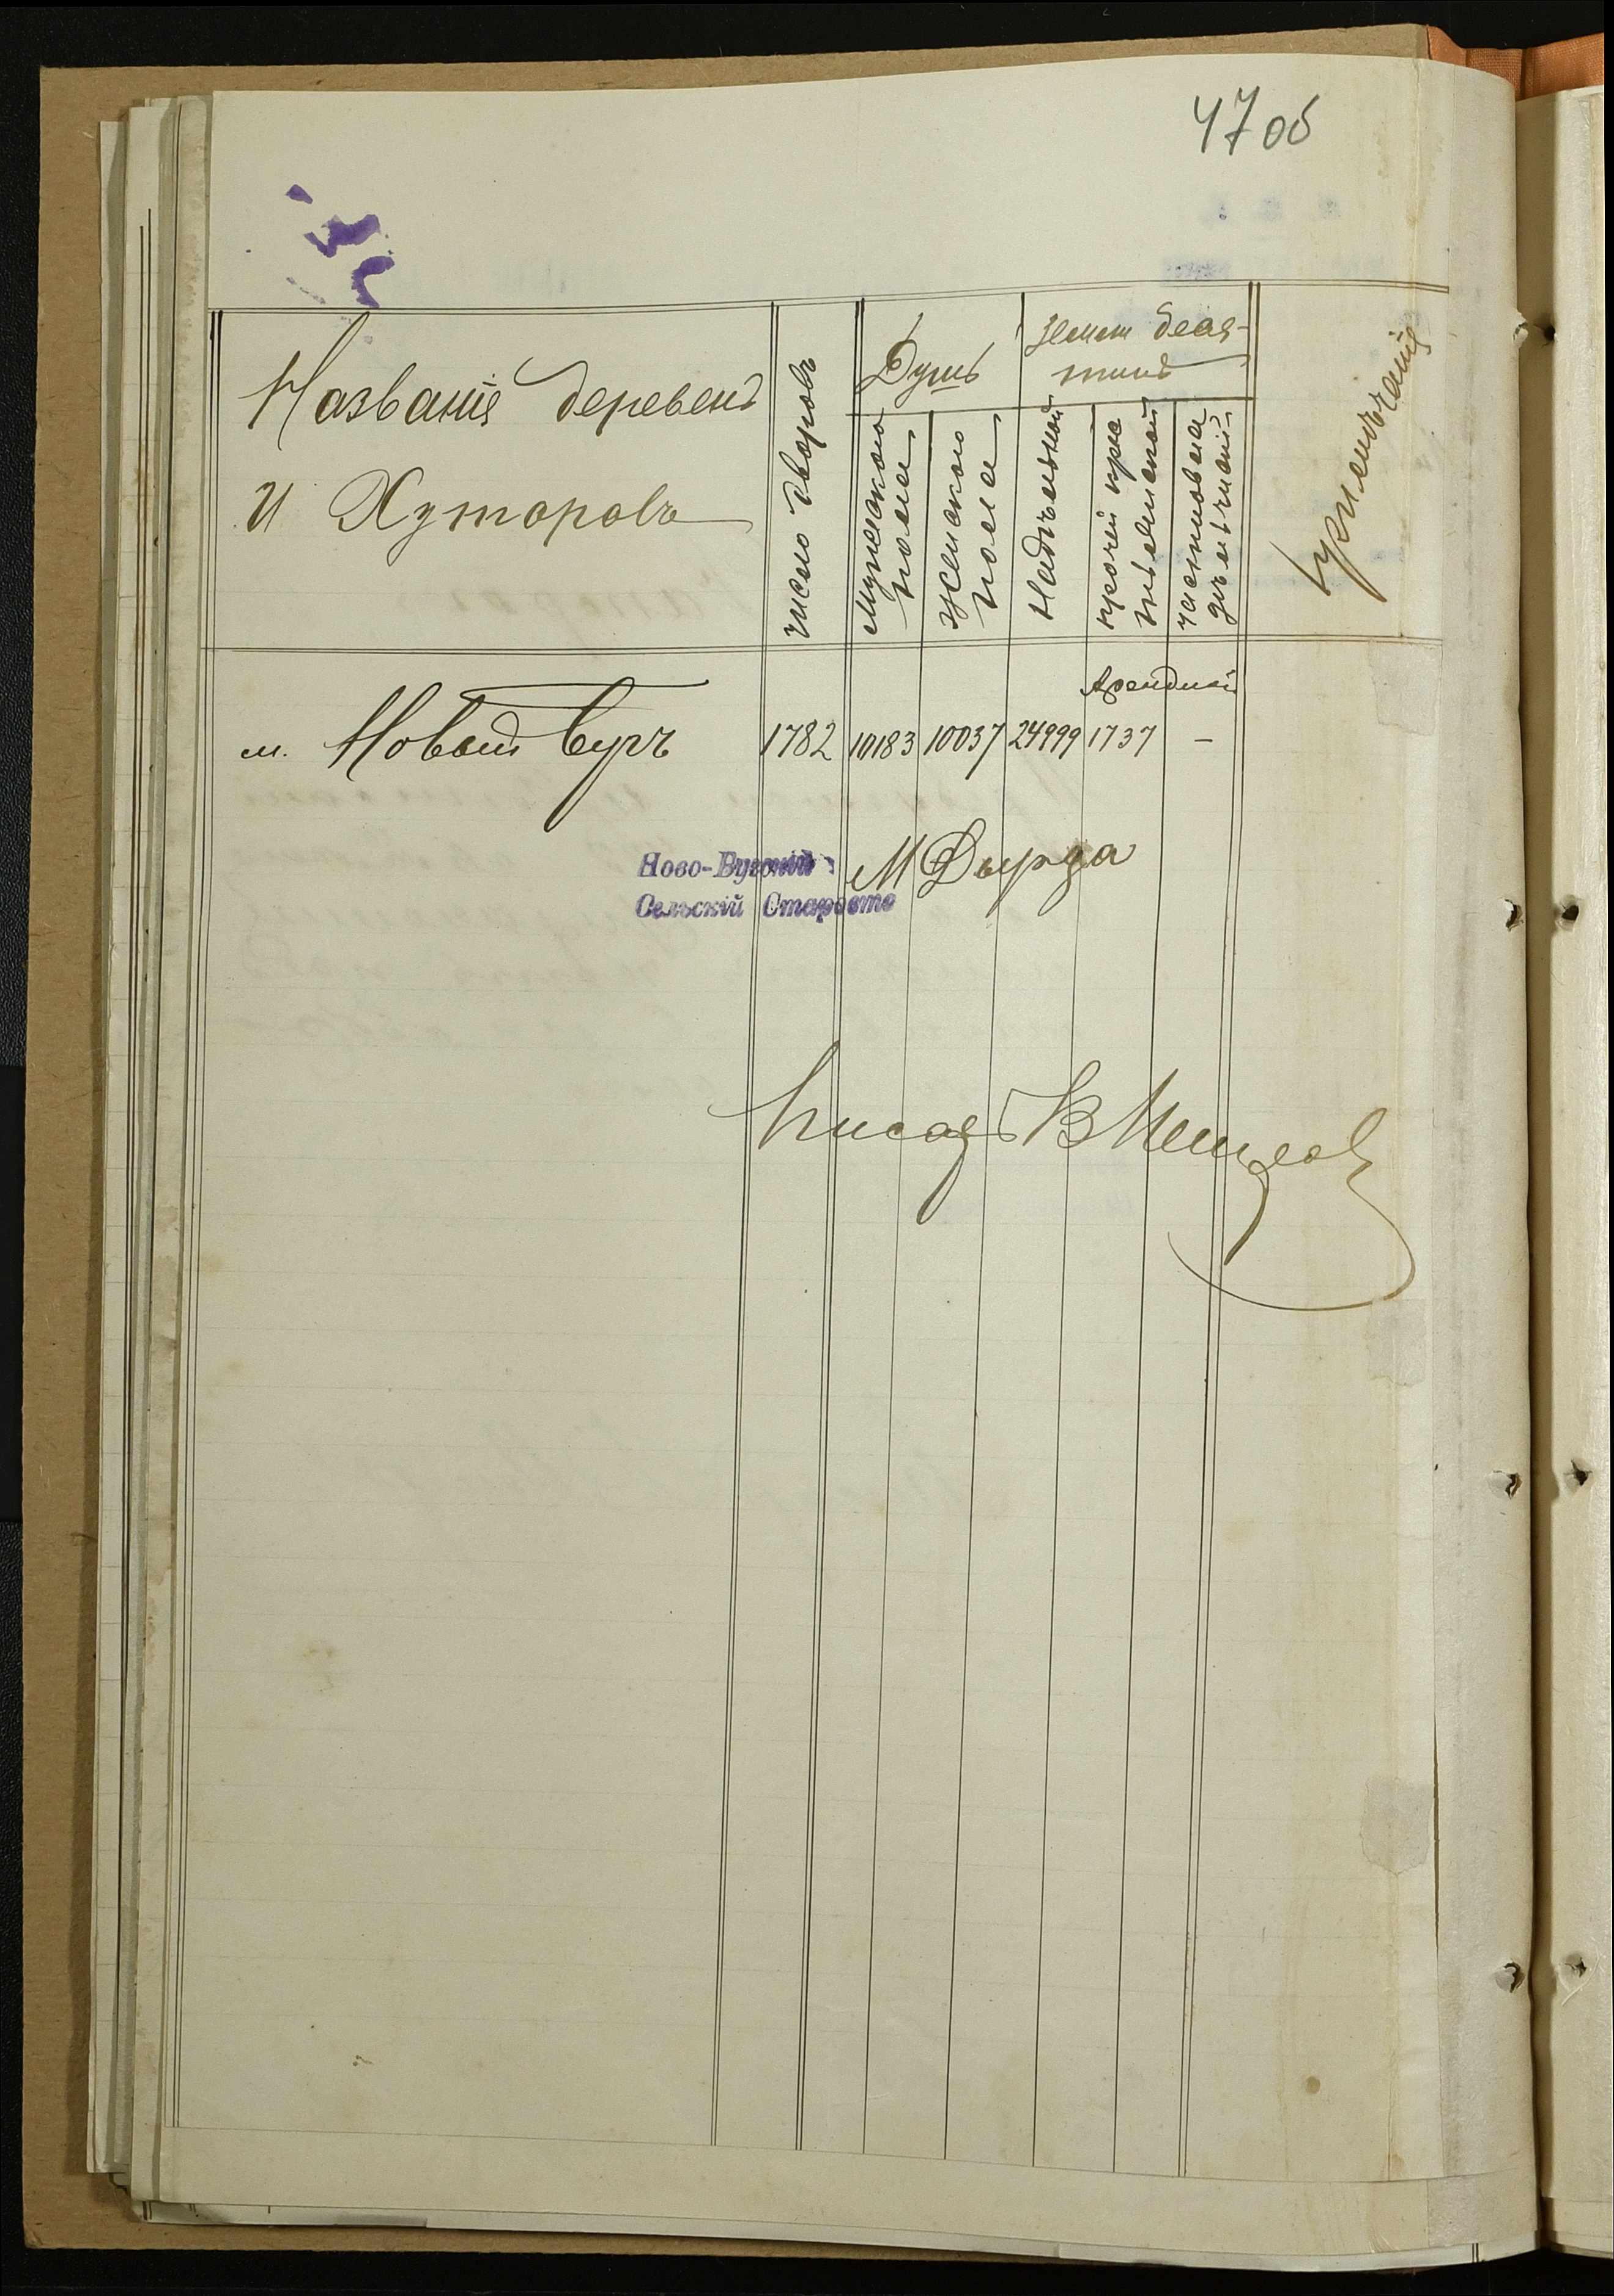 47 об
Названія деревень
и Хуторовъ
число дворовъ
Душъ
Мужского
пола
женского
пола
земли деся-
тинъ
Надѣльной
прочей кре
стьянской
частновла
дѣльческой
Примѣчанія
Арендной
м. Новый Бугъ 1782 10183 10037 24999 1737 —
Ново-Бугскій
Сельскій Староста
М Дырда
Писарь В